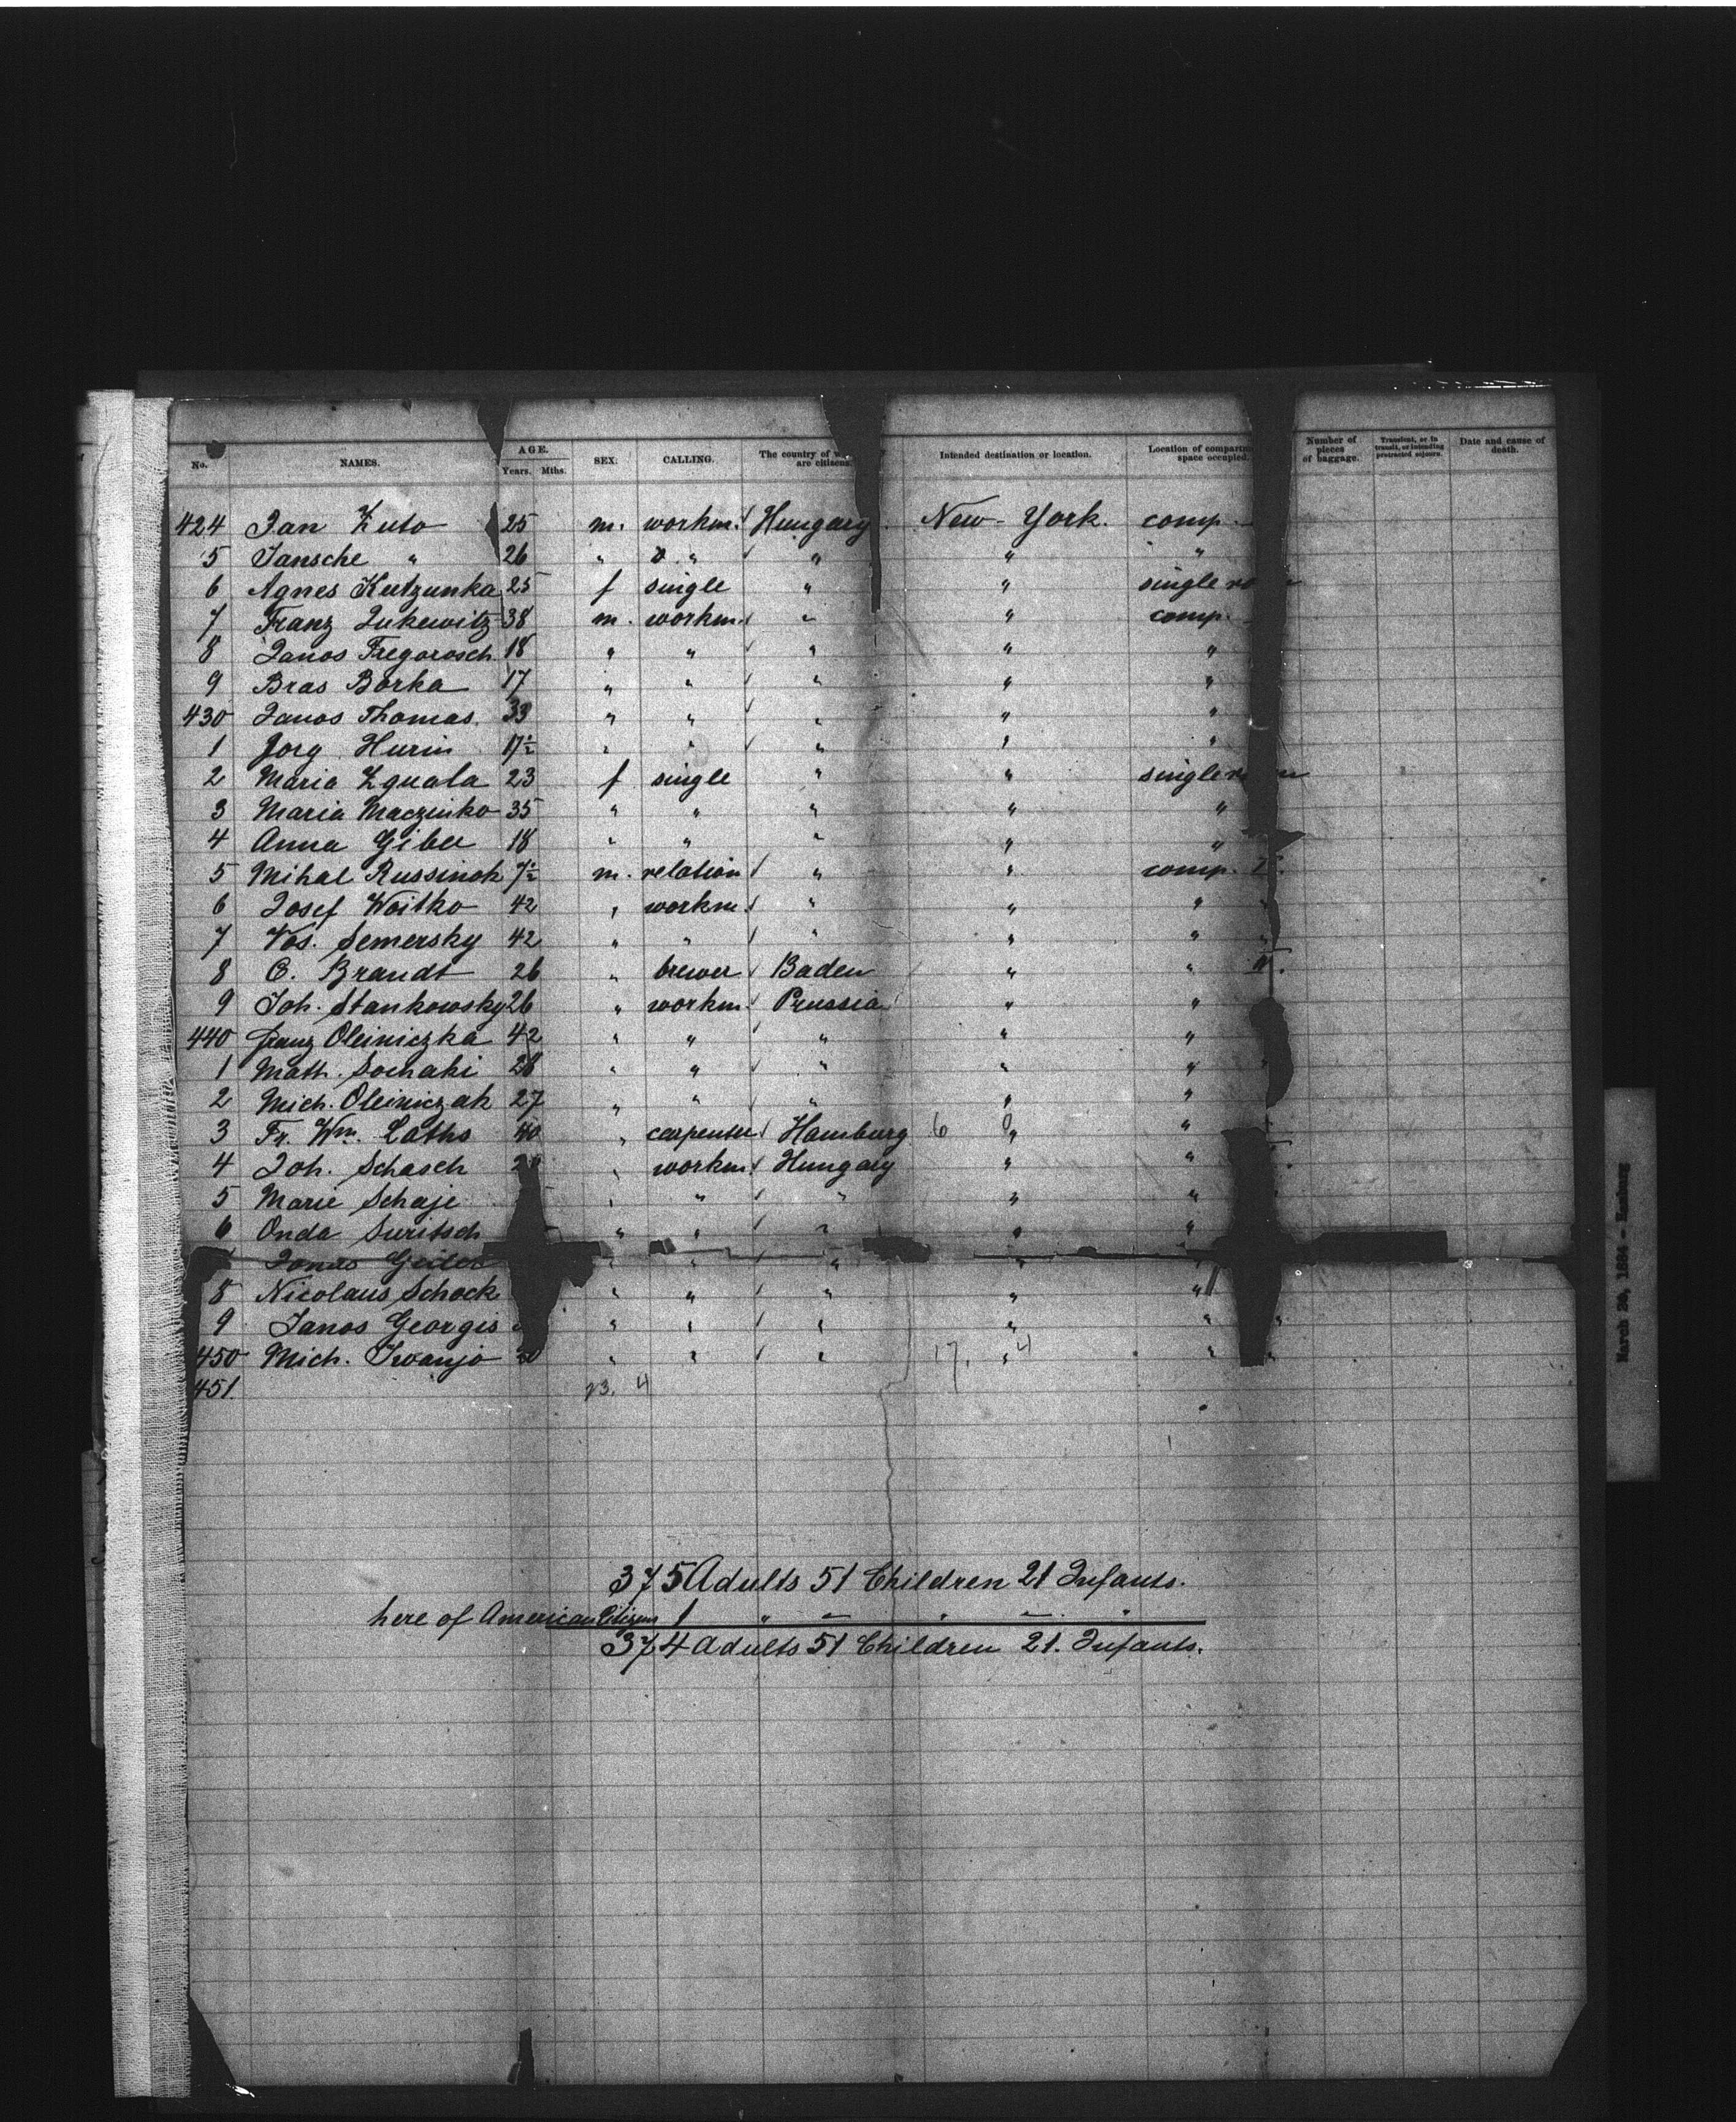 No. NAMES. AGE. Years. Mths. SEX. CALLING. The country of w are citizens. Intended destination or location. Location of compartm space occupied. Number of pieces of baggage. Transient, or in transit, or intending protracted sojourn. Date and cause of death.
424 Jan Kuto 25 m. workm. Hungary New-York. comp.
5 Jansche " 26 " " " " "
6 Agnes Kutzunka 25 f single " " single ro
7 Franz Lukewitz 38 m. workm. " " comp.
8 Janos Fregorosch 18 " " " " "
9 Bras Borka 17 " " " " "
430 Janos Thomas. 33 " " " " "
1 Jorg Hurin 17½ " " " " "
2 Maria Zguala 23 f single " " single r m
3 Maria Maczinko 35 " " " " "
4 Anna Giba 18 " " " " "
5 Mihal Russinok 7½ m. relation " " comp. I.
6 Josef Woitko 42 " workm. " " " "
7 Vas. Semersky 42 " " " " " "
8 C. Brandt 26 " brewer Baden " " II.
9 Joh. Stankowsky 26 " workm. Prussia " "
440 Franz Oleiniczka 42 " " " " "
1 Math. Sochaki 28 " " " " "
2 Mich. Oleiniczak 27 " " " " "
3 Fr. Wm. Laths 40 " carpenter Hamburg 6 0 " "
4 Joh. Schasch " workm. Hungary " "
5 Marie Schaje " " " " "
6 Onda Suritsch " " " " "
Janos " " " " "
8 Nicolaus Schock " " " " "
9 Janos Georgis " " " " " "
450 Mich. Iwanjo 20 " " " 17. 4 " " "
451. 23. 4
375 Adults 51 Children 21 Infants.
here of American Citizen 1 " " " " "
374 Adults 51 Children 21. Infants.
March 26, 1884 - Hamburg